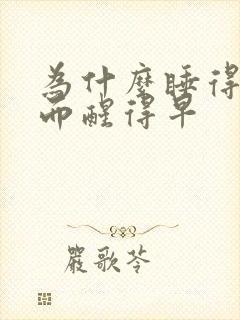 為什麼睡得
而醒得早
嚴歌苓